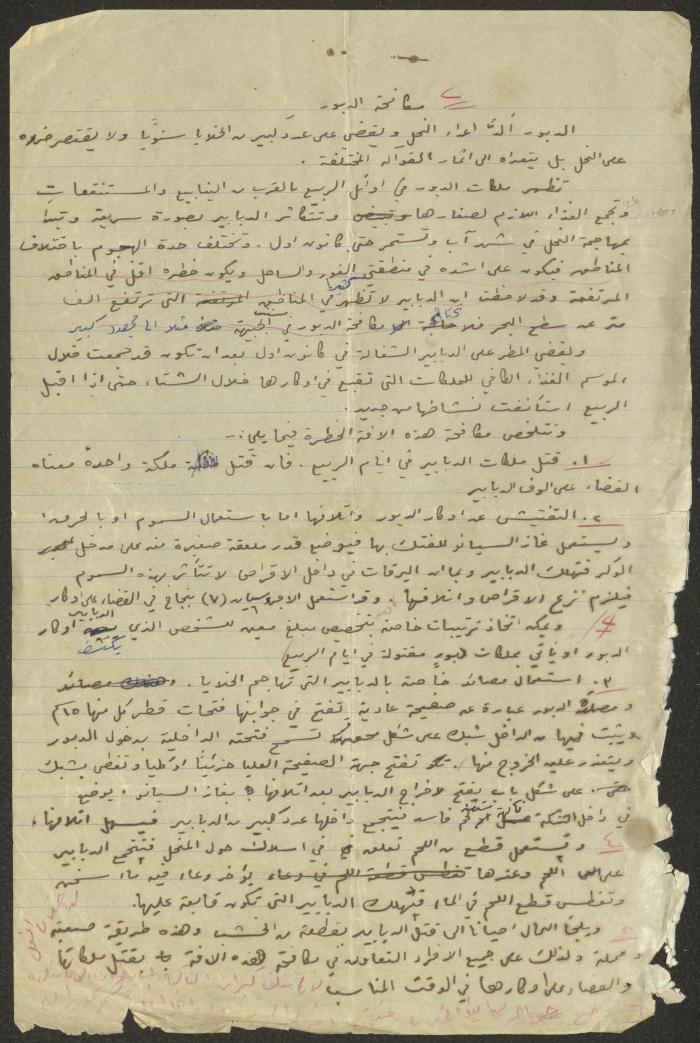 مكافحة الدبور
الدبور ألدّ اعداء النحل ويقضي على عدد كبير من الخلايا سنويًا ولا يقتصر ضرره
على النحل بل يتعداه الى اثمار الفواكه المختلفة .
تظهر ملكات الدبور في اوائل الربيع بالقرب من الينابيع والمستنقعات
وتجمع الغذاء اللازم لصغارها وتتكاثر الدبابير بصورة سريعة وتبدأ
بمهاجمة النحل في شهر آب وتستمر حتى كانون اول . وتختلف حدة الهجوم باختلاف
المناطق فيكون على اشده في منطقتي الغور والساحل ويكون خطره اقل في المناطق
المرتفعة وقد لاحظنا ان الدبابير لا تظهر في المناطق التي ترتفع الف
متر عن سطح البحر فلا تحتاج مكافحة الدبور في الجبيهة مثلا الى مجهود كبير
ويقضي المطر على الدبابير الشغالة في كانون اول بعد ان تكون قد جمعت خلال
الموسم الغذاء الكافي للملكات التي تقبع في اوكارها خلال الشتاء حتى اذا اقبل
الربيع استأنفت نشاطها من جديد .
وتتلخص مكافحة هذه الافة الخطرة فيما يلي :-
١. قتل ملكات الدبابير في ايام الربيع . فان قتل ملكة واحدة معناه
القضاء على الوف الدبابير
٢. التفتيش عن اوكار الدبور واتلافها اما باستعمال السموم او بالحرق
ويستعمل غاز السيانو للفتك بها فيوضع قدر ملعقة صغيرة منه على مدخل
الوكر فتهلك الدبابير وبما ان اليرقات في داخل الاقراص لا تتأثر بهذه السموم
فيلزم نزع الاقراص واتلافها . وقد استعمل (٧) بنجاح في القضاء على اوكار الدبابير
ويمكن اتخاذ ترتيبات خاصة بتخصيص مبلغ معين للشخص الذي يكتشف اوكار
الدبور او يأتي بملكات دبور مقتولة في ايام الربيع
٣. استعمال مصائد خاصة بالدبابير التي تهاجم الخلايا .
ومصيدة الدبور عبارة عن صفيحة عادية تفتح في جوانبها فتحات قطر كل منها ١٥ سم
ويثبت فيها من الداخل شبك على شكل تسمح فتحته الداخلية بدخول الدبور
ويتعذر عليه الخروج منها . تفتح جهة الصفيحة العليا جزئيًا او كليا وتغطى بشبك
على شكل باب يفتح لاخراج الدبابير بعد اتلافها بغاز السيانو . يوضع
في داخل لحم فاسد فيتجمع داخلها عدد كبير من الدبابير فيسهل اتلافها .
٤ وتستعمل قطع من اللحم تعلق في اسلاك حول المنحل فتتجمع الدبابير
على اللحم وعندها يؤخر وعاء فيه ماء سخن
وتغطس قطع اللحم في الماء فتهلك الدبابير التي تكون قابعة عليها .
٥ ويلجأ النحال احيانا الى قتل الدبابير بقطعة من الخشب وهذه طريقة صعبة
ومملة ولذلك على جميع الافراد التعاون في مكافحة هذه الافة بقتل ملكاتها
والقضاء على اوكارها في الوقت المناسب